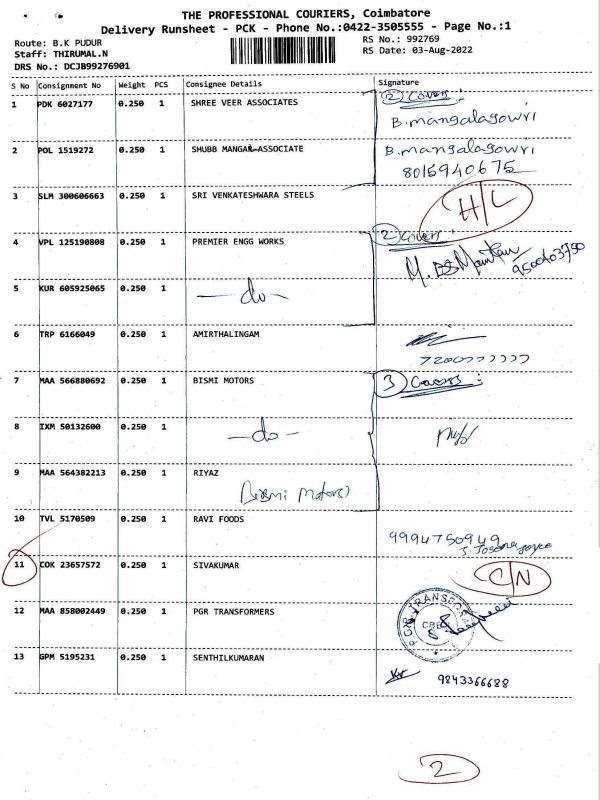 THE PROFESSIONAL COURIERS, Coimbatore
Delivery Runsheet - PCK - Phone No.:0422-3505555 - Page No.:1
Route: B.K PUDUR
Staff: THIRUMAL.N
DRS No.: DCJB99276901
RS No.: 992769
RS Date: 03-Aug-2022
S No Consignment No Weight PCS Consignee Details Signature
1 PDK 6027177 0.250 1 SHREE VEER ASSOCIATES
2 Covers:
B.mangalagowri
2 POL 1519272 0.250 1 SHUBB MANGAL ASSOCIATE B.mangalagowri
8015940675
3 SLM 300606663 0.250 1 SRI VENKATESHWARA STEELS H/L
4 VPL 125190808 0.250 1 PREMIER ENGG WORKS
2 Covers:
5 KUR 605925065 0.250 1 —do—
6 TRP 6166049 0.250 1 AMIRTHALINGAM
7 MAA 566880692 0.250 1 BISMI MOTORS
3 Covers:
8 IXM 50132600 0.250 1 —do—
9 MAA 564382213 0.250 1 RIYAZ
(Bismi Motors)
10 TVL 5170509 0.250 1 RAVI FOODS 9994750949
11 COK 23657572 0.250 1 SIVAKUMAR C/N
12 MAA 858002449 0.250 1 PGR TRANSFORMERS
13 GPM 5195231 0.250 1 SENTHILKUMARAN
9843366688
2